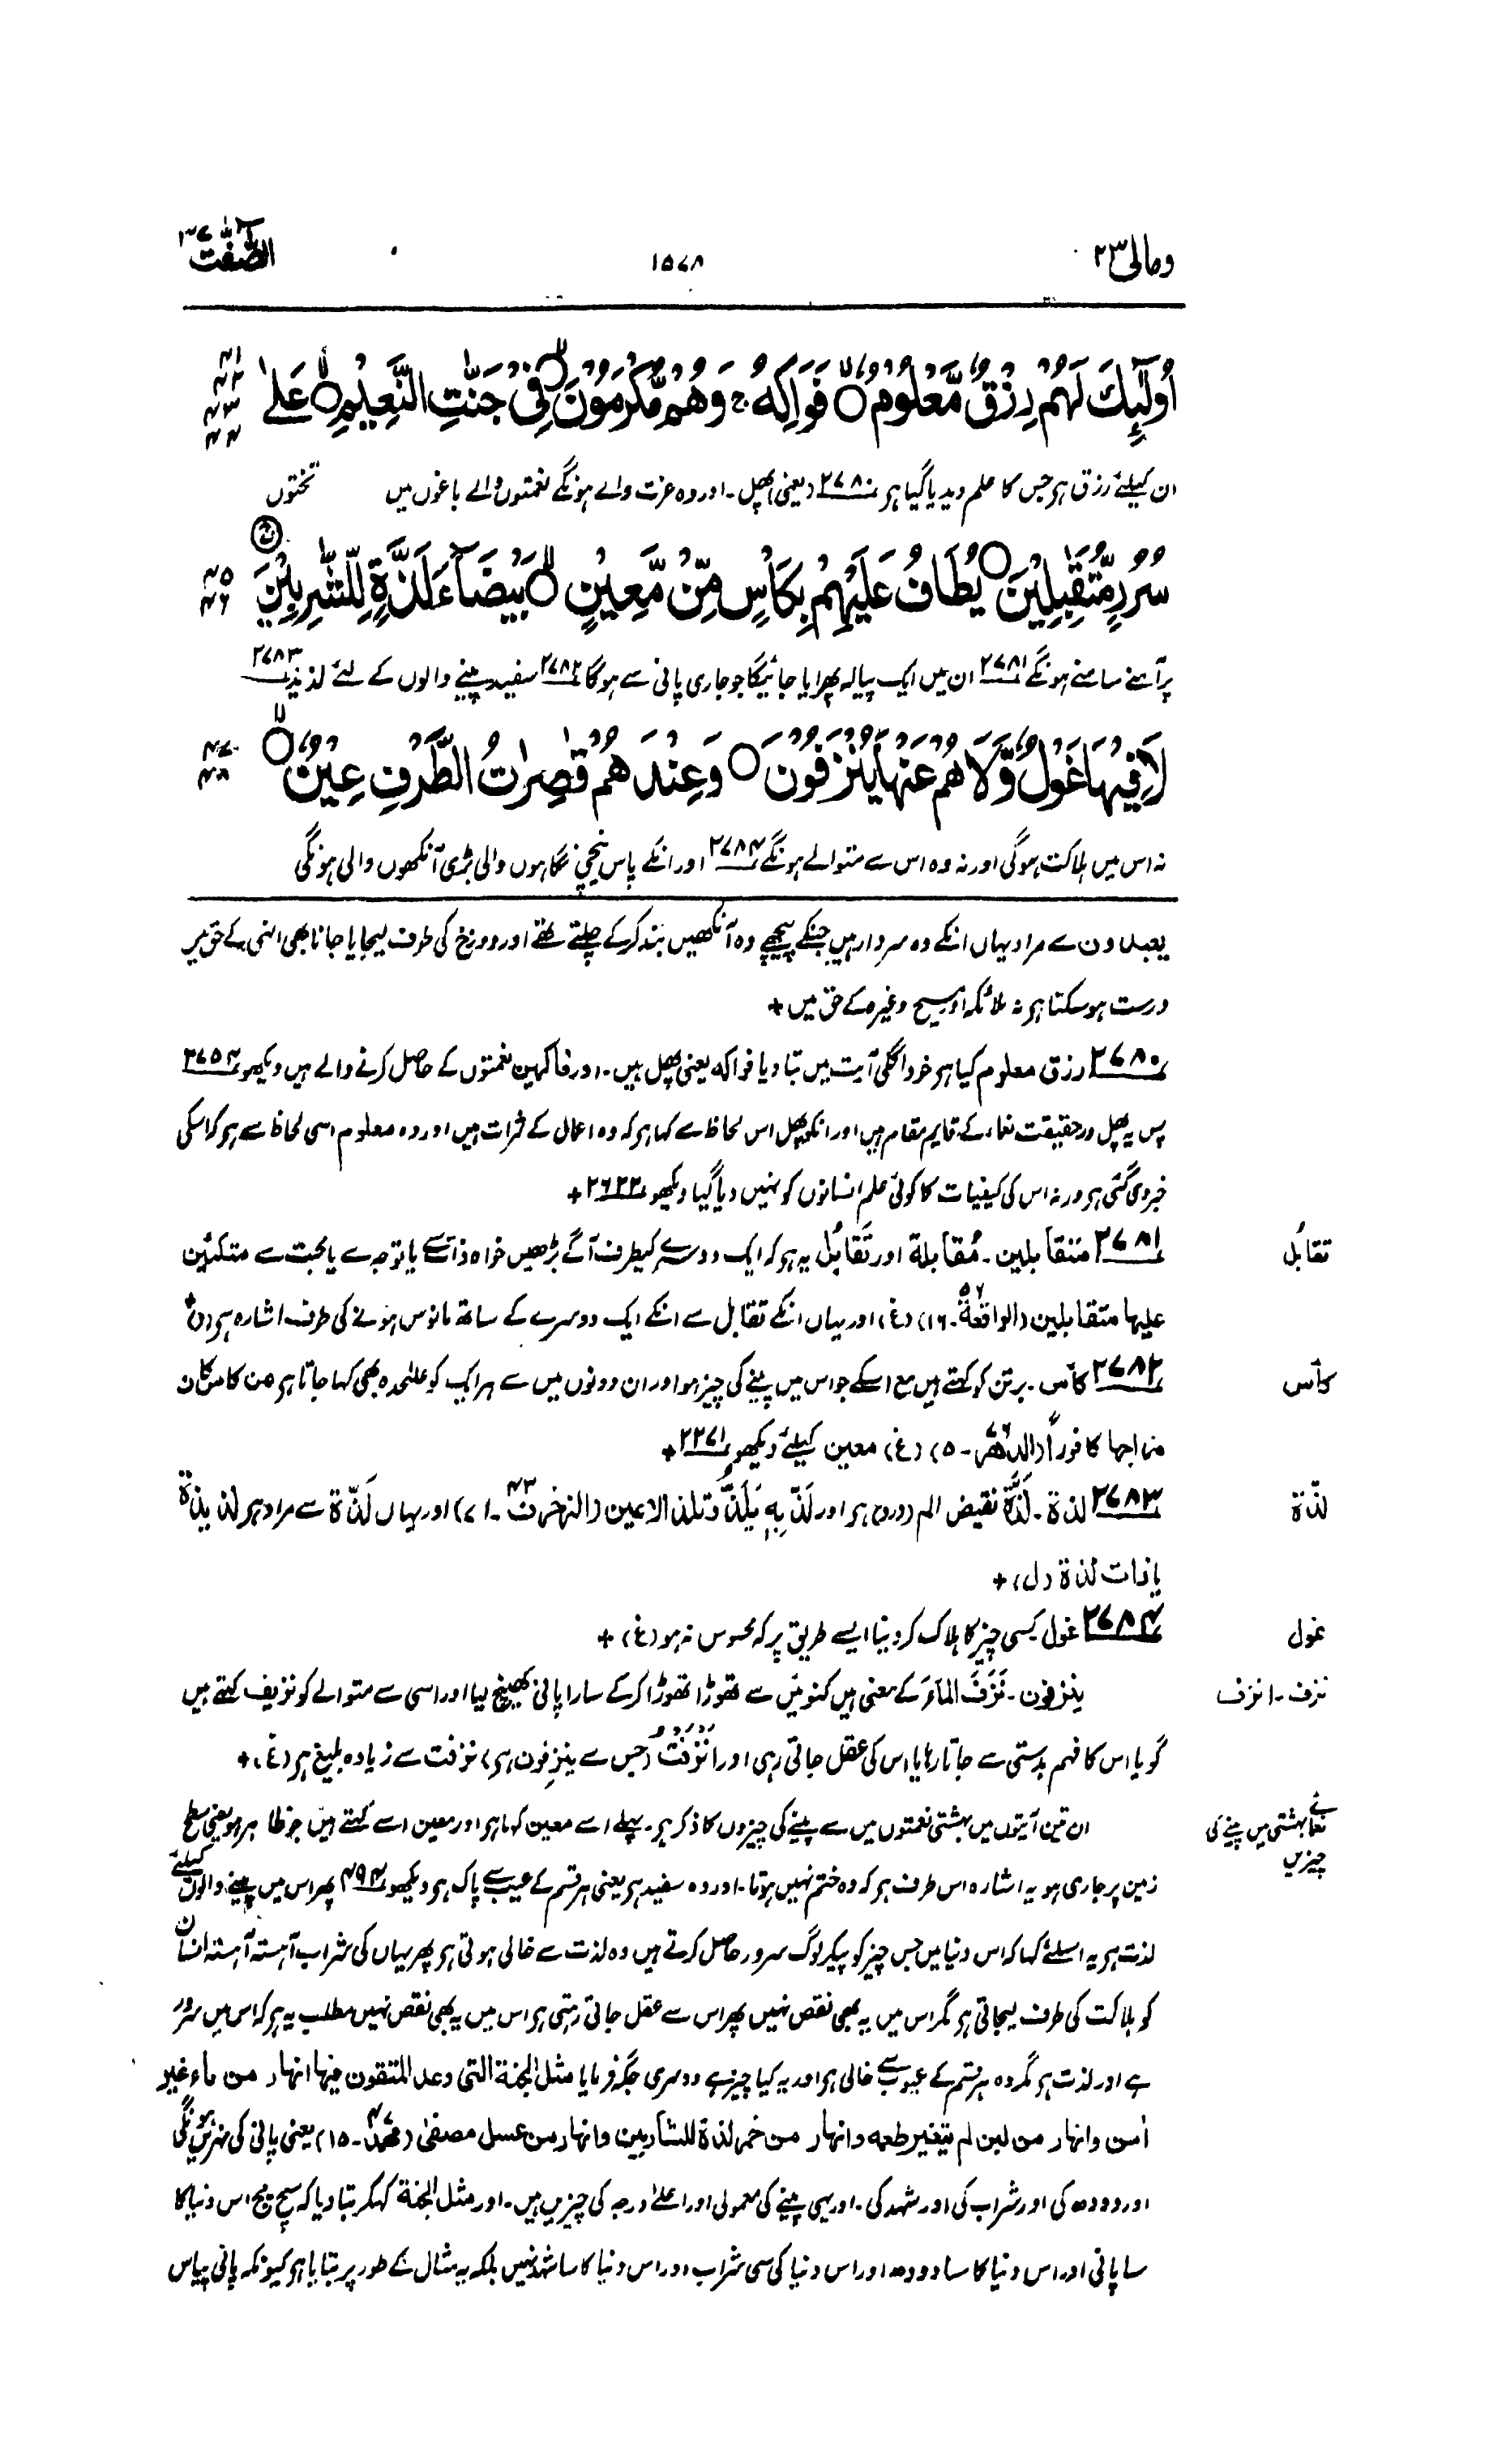 ومالی ۲۳
۱۵۷۸
الصّٰفّٰت ۳۷
اُولٰٓئِكَ لَهُمْ رِزْقٌ مَّعْلُوْمٌ ○ فَوَاكِهُ ۚ وَهُمْ مُّكْرَمُوْنَ ○ فِيْ جَنّٰتِ النَّعِيْمِ ○ عَلٰى
۴۱
۴۲
۴۳
۴۴
ان کیلئے رزق ہر جس کا علم دیدیا گیا ہر ۲۷۸۰ (یعنی) پھل۔ اور وہ عزت والے ہونگے نعمتوں والے باغوں میں تختوں
سُرُرٍ مُّتَقٰبِلِيْنَ ○ يُطَافُ عَلَيْهِمْ بِكَاْسٍ مِّنْ مَّعِيْنٍ ○ بَيْضَآءَ لَذَّةٍ لِّلشّٰرِبِيْنَ
۴۵
۴۶
پر آمنے سامنے ہونگے ۲۷۸۱ ان میں ایک پیالہ پھرایا جائیگا جو جاری پانی سے ہوگا ۲۷۸۲ سفید پینے والوں کے لئے لذیذ ۲۷۸۳
لَا فِيْهَا غَوْلٌ وَّلَا هُمْ عَنْهَا يُنْزَفُوْنَ ○ وَعِنْدَهُمْ قٰصِرٰتُ الطَّرْفِ عِيْنٌ ○
۴۷
۴۸
نہ اس میں ہلاکت ہوگی اور نہ وہ اس سے متوالے ہونگے ۲۷۸۴ اور انکے پاس نیچی نگاہوں والی بڑی آنکھوں والی ہونگی
یعبدون سے مراد یہاں انکے وہ سردار ہیں جنکے پیچھے وہ آنکھیں بند کرکے چلتے تھے اور دوزخ کی طرف لیجایا جانا بھی انہی کے حق میں
درست ہوسکتا ہر نہ ملائکہ اور مسیح وغیرہ کے حق میں +
۲۷۸۰ رزق معلوم کیا ہر خود اگلی آیت میں بتا دیا فواکہ یعنی پھل ہیں۔ اور فاکہین نعمتوں کے حاصل کرنے والے ہیں دیکھو ۲۷۵۴
پس یہ پھل درحقیقت نعماء کے قایم مقام ہیں اور انکو پھل اس لحاظ سے کہا ہر کہ وہ اعمال کے ثمرات ہیں اور وہ معلوم اسی لحاظ سے ہر کہ اسکی
خبر دی گئی ہر ورنہ اس کی کیفیات کا کوئی علم انسانوں کو نہیں دیا گیا دیکھو ۲۶۲۲ +
تقابُل
۲۷۸۱ متقابلین۔ مُقابلة اور تَقابُل یہ ہر کہ ایک دوسرے کیطرف آگے بڑھیں خواہ ذات سے یا توجہ سے یا محبت سے متکئین
علیها متقابلین (الواقعة ۵۶۔ ۱۶) (غ) اور یہاں انکے تقابل سے انکے ایک دوسرے کے ساتھ مانوس ہونے کی طرف اشارہ ہر (ن) +
کأس
۲۷۸۲ کأس۔ برتن کو کہتے ہیں مع اسکے جو اس میں پینے کی چیز ہو اور ان دونوں میں سے ہر ایک کو علٰحدہ بھی کہا جاتا ہر من کاس کان
مزاجها کافوراً (الدهر ۷۶۔ ۵) (غ) معین کیلئے دیکھو ۲۲۷۱ +
لذّة
۲۷۸۳ لذة۔ لَذّة نقیض الم (درد) ہر اور لَذَّ بِهٖ يَلَذُّ وتلذ الاعین (الزخرف ۴۳۔ ۷۱) اور یہاں لَذّة سے مراد ہر لذیذة
یا ذات لذة (ل) +
غول
۲۷۸۴ غول کسی چیز کا ہلاک کر دینا ایسے طریق پر کہ محسوس نہ ہو (غ) +
نزف۔ انزف
ینزفون۔ نَزَفَ الماءَ کے معنی ہیں کنوئیں سے تھوڑا تھوڑا کرکے سارا پانی کھینچ لیا اور اسی سے متوالے کو نزیف کہتے ہیں
گویا اس کا فہم بدمستی سے جاتا رہا یا اس کی عقل جاتی رہی اور اَنْزَفَتْ (جس سے ینزِفون ہر) نزفت سے زیادہ بلیغ ہر (غ) +
نعمائے بہشتی میں پینے کی چیزیں
ان تین آیتوں میں بہشتی نعمتوں میں سے پینے کی چیزوں کا ذکر ہر۔ پہلے اسے معین کہا ہر اور معین اسے کہتے ہیں جو ظاہر ہو یعنی سطح
زمین پر جاری ہو یہ اشارہ اس طرف ہر کہ وہ ختم نہیں ہوتا۔ اور وہ سفید ہر یعنی ہر قسم کے عیب سے پاک ہر دیکھو ۴۹۴ پھر اس میں پینے والوں کیلئے
لذت ہر یہ اسلئے کہا کہ اس دنیا میں جس چیز کو پیکر لوگ سرور حاصل کرتے ہیں وہ لذت سے خالی ہوتی ہر پھر یہاں کی شراب آہستہ آہستہ انسان
کو ہلاکت کی طرف لیجاتی ہر مگر اس میں یہ بھی نقص نہیں پھر اس سے عقل جاتی رہتی ہر اس میں یہ بھی نقص نہیں مطلب یہ ہر کہ اس میں سرور
ہے اور لذت ہر مگر وہ ہر قسم کے عیوب سے خالی ہر اور یہ کیا چیز ہے دوسری جگہ فرمایا مثل الجنة التی وعد المتقون فیها انهار من ماء غیر
اٰسن وانهار من لبن لم یتغیر طعمه وانهار من خمر لذة للشاربین وانهار من عسل مصفیٰ (محمد ۴۷۔ ۱۵) یعنی پانی کی نہریں ہونگی
اور دودھ کی اور شراب کی اور شہد کی۔ اور یہی پینے کی معمولی اور اعلےٰ درجہ کی چیزیں ہیں۔ اور مثل الجنة کہکر بتا دیا کہ سچ مچ اس دنیا کا
سا پانی اور اس دنیا کا سا دودھ اور اس دنیا کی سی شراب اور اس دنیا کا سا شہد نہیں بلکہ یہ مثال کے طور پر بتایا ہر کیونکہ پانی پیاس